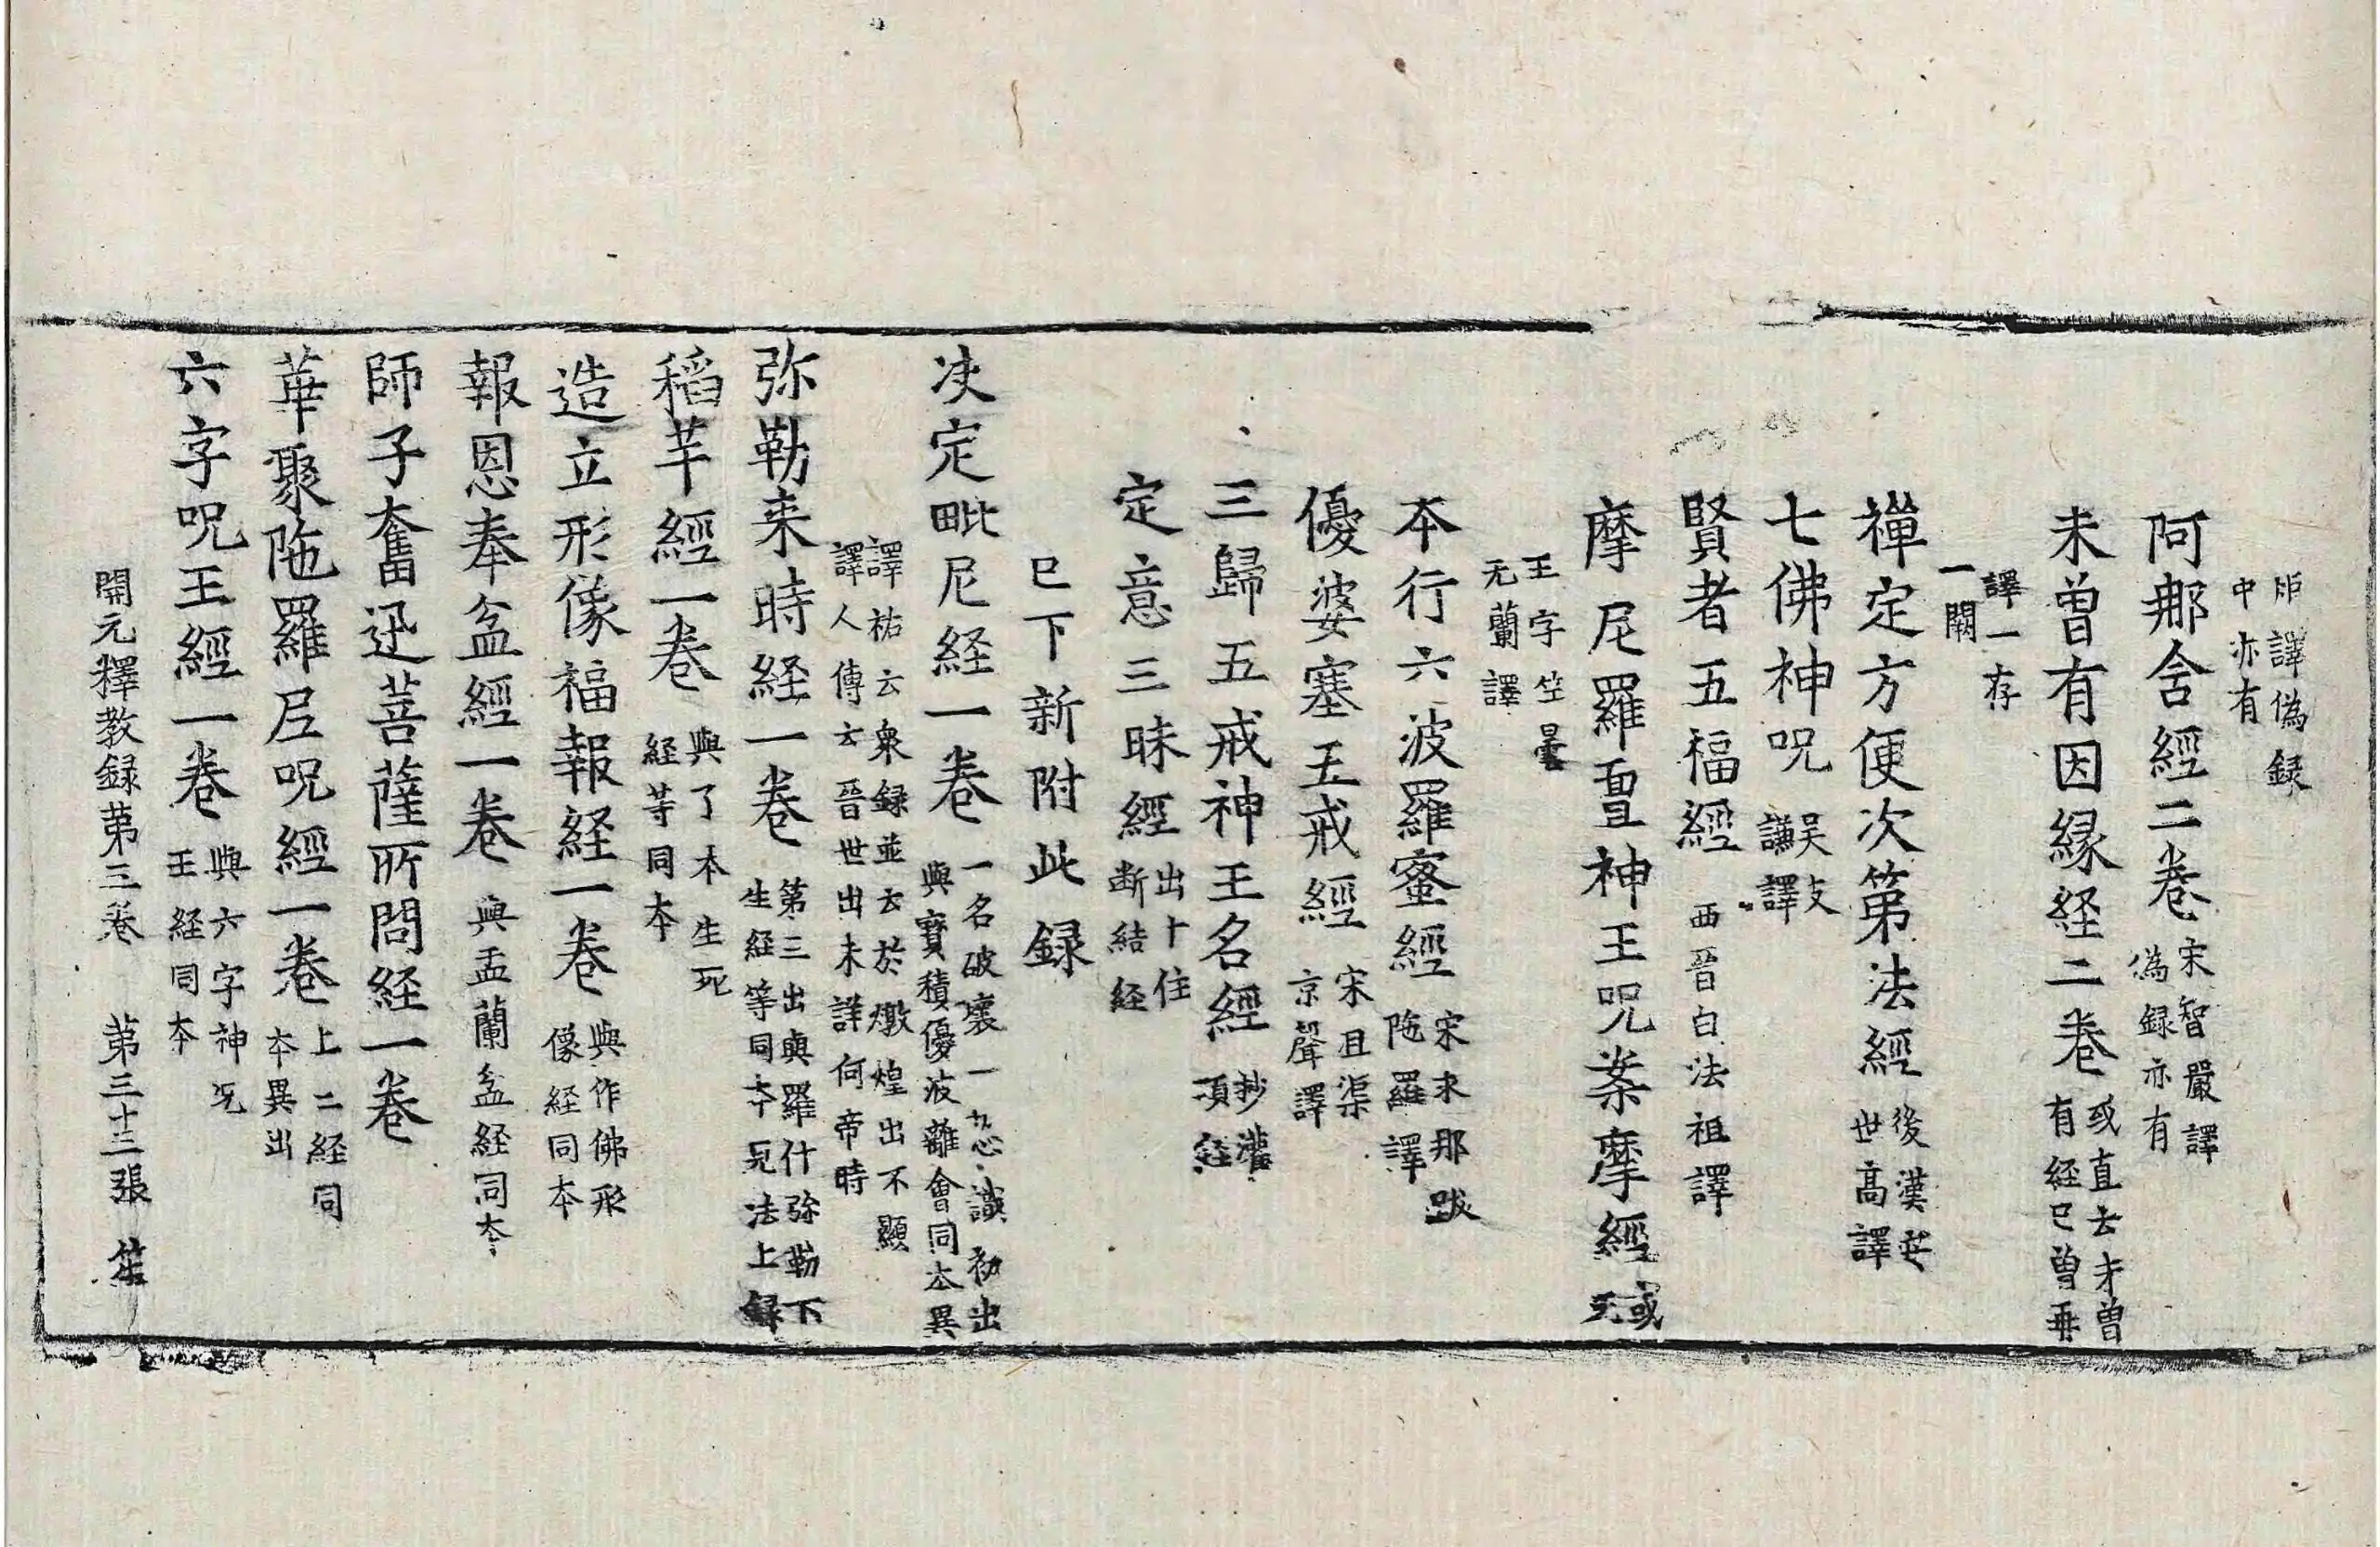 譯偽録
中亦有
阿那含經二卷宋智嚴譯
偽録亦有
未曾有因縁経二卷或直云未曾
有経已曾再
譯一存
一闕
禅定方便次第法經後漢安
世高譯
七佛神呪吳支
謙譯
賢者五福經西晉白法祖譯
摩尼羅亶神王呪案摩經或
无
王字竺曇
无蘭譯
本行六波羅蜜經宋求那跋
陁羅譯
優婆塞五戒經宋且渠
京聲譯
三歸五戒神王名經抄灌
頂経
定意三昧經出十住
断結経
已下新附此録
决定毗尼経一卷一名破壞一心識初出
與寶積優波離會同本異
譯祐云衆録並云於燉煌出不顯
譯人傳云晉世出未詳何帝時
弥勒来時経一卷第三出與羅什弥勒下
生経等同本見法上録
稻芉經一卷與了本生死
経等同本
造立形像福報経一卷與作佛形
像経同本
報恩奉盆經一卷與盂蘭盆経同本
師子奮迅菩薩所問経一卷
華聚陁羅尼呪經一卷上二経同
本異出
六字呪王經一卷與六字神呪
王経同本
開元釋教録第三卷 第三十三張 笙